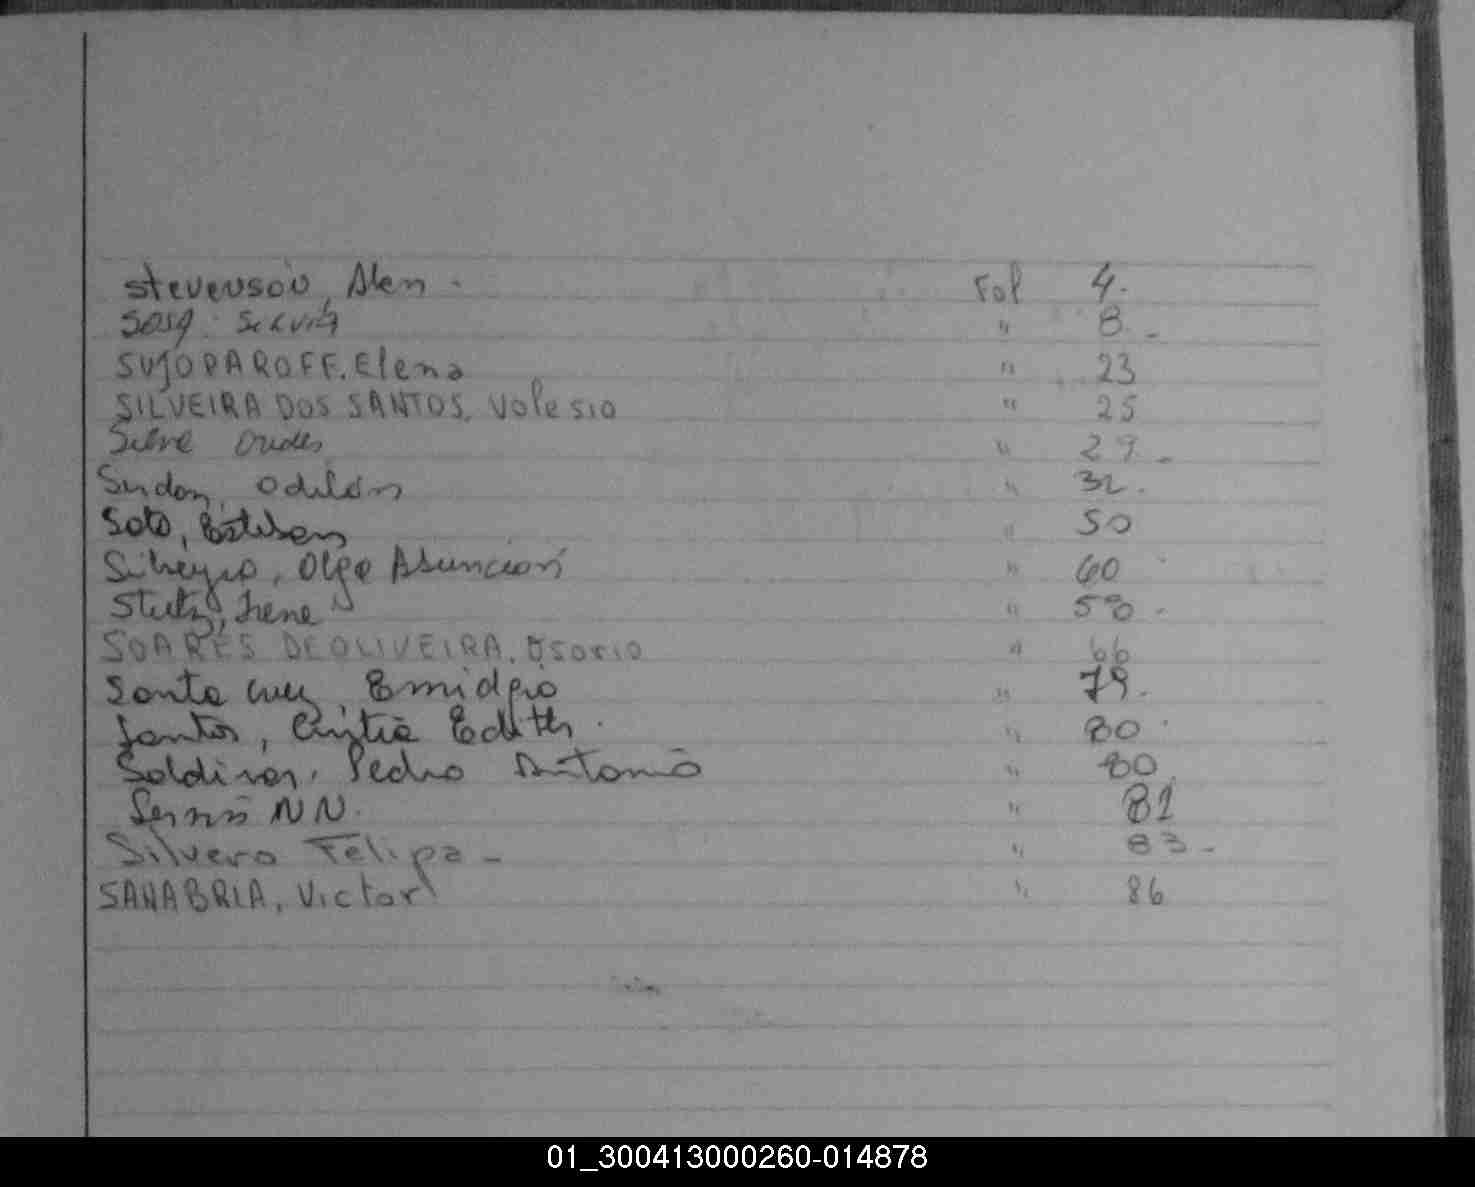 Stevenson, Alen. Fol 4.
Sosa. Silvia " 8.-
SUJOPAROFF. Elena " 23
SILVEIRA DOS SANTOS. Volesio " 25
" 29.-
Odilón " 32.
Soto, Esteban " 50
Silveyra, Olga Asunción " 60
Stutz, Irene " 58.-
SOARES DE OLIVEIRA. Osorio " 66
Santa Cruz, Emidgio " 79.
Santos, Cintia Edith. " 80.
Saldivar, Pedro Antonio " 80.
NN. " 81
Silvero Felipa - " 83.-
SANABRIA, Victor " 86
01_300413000260-014878